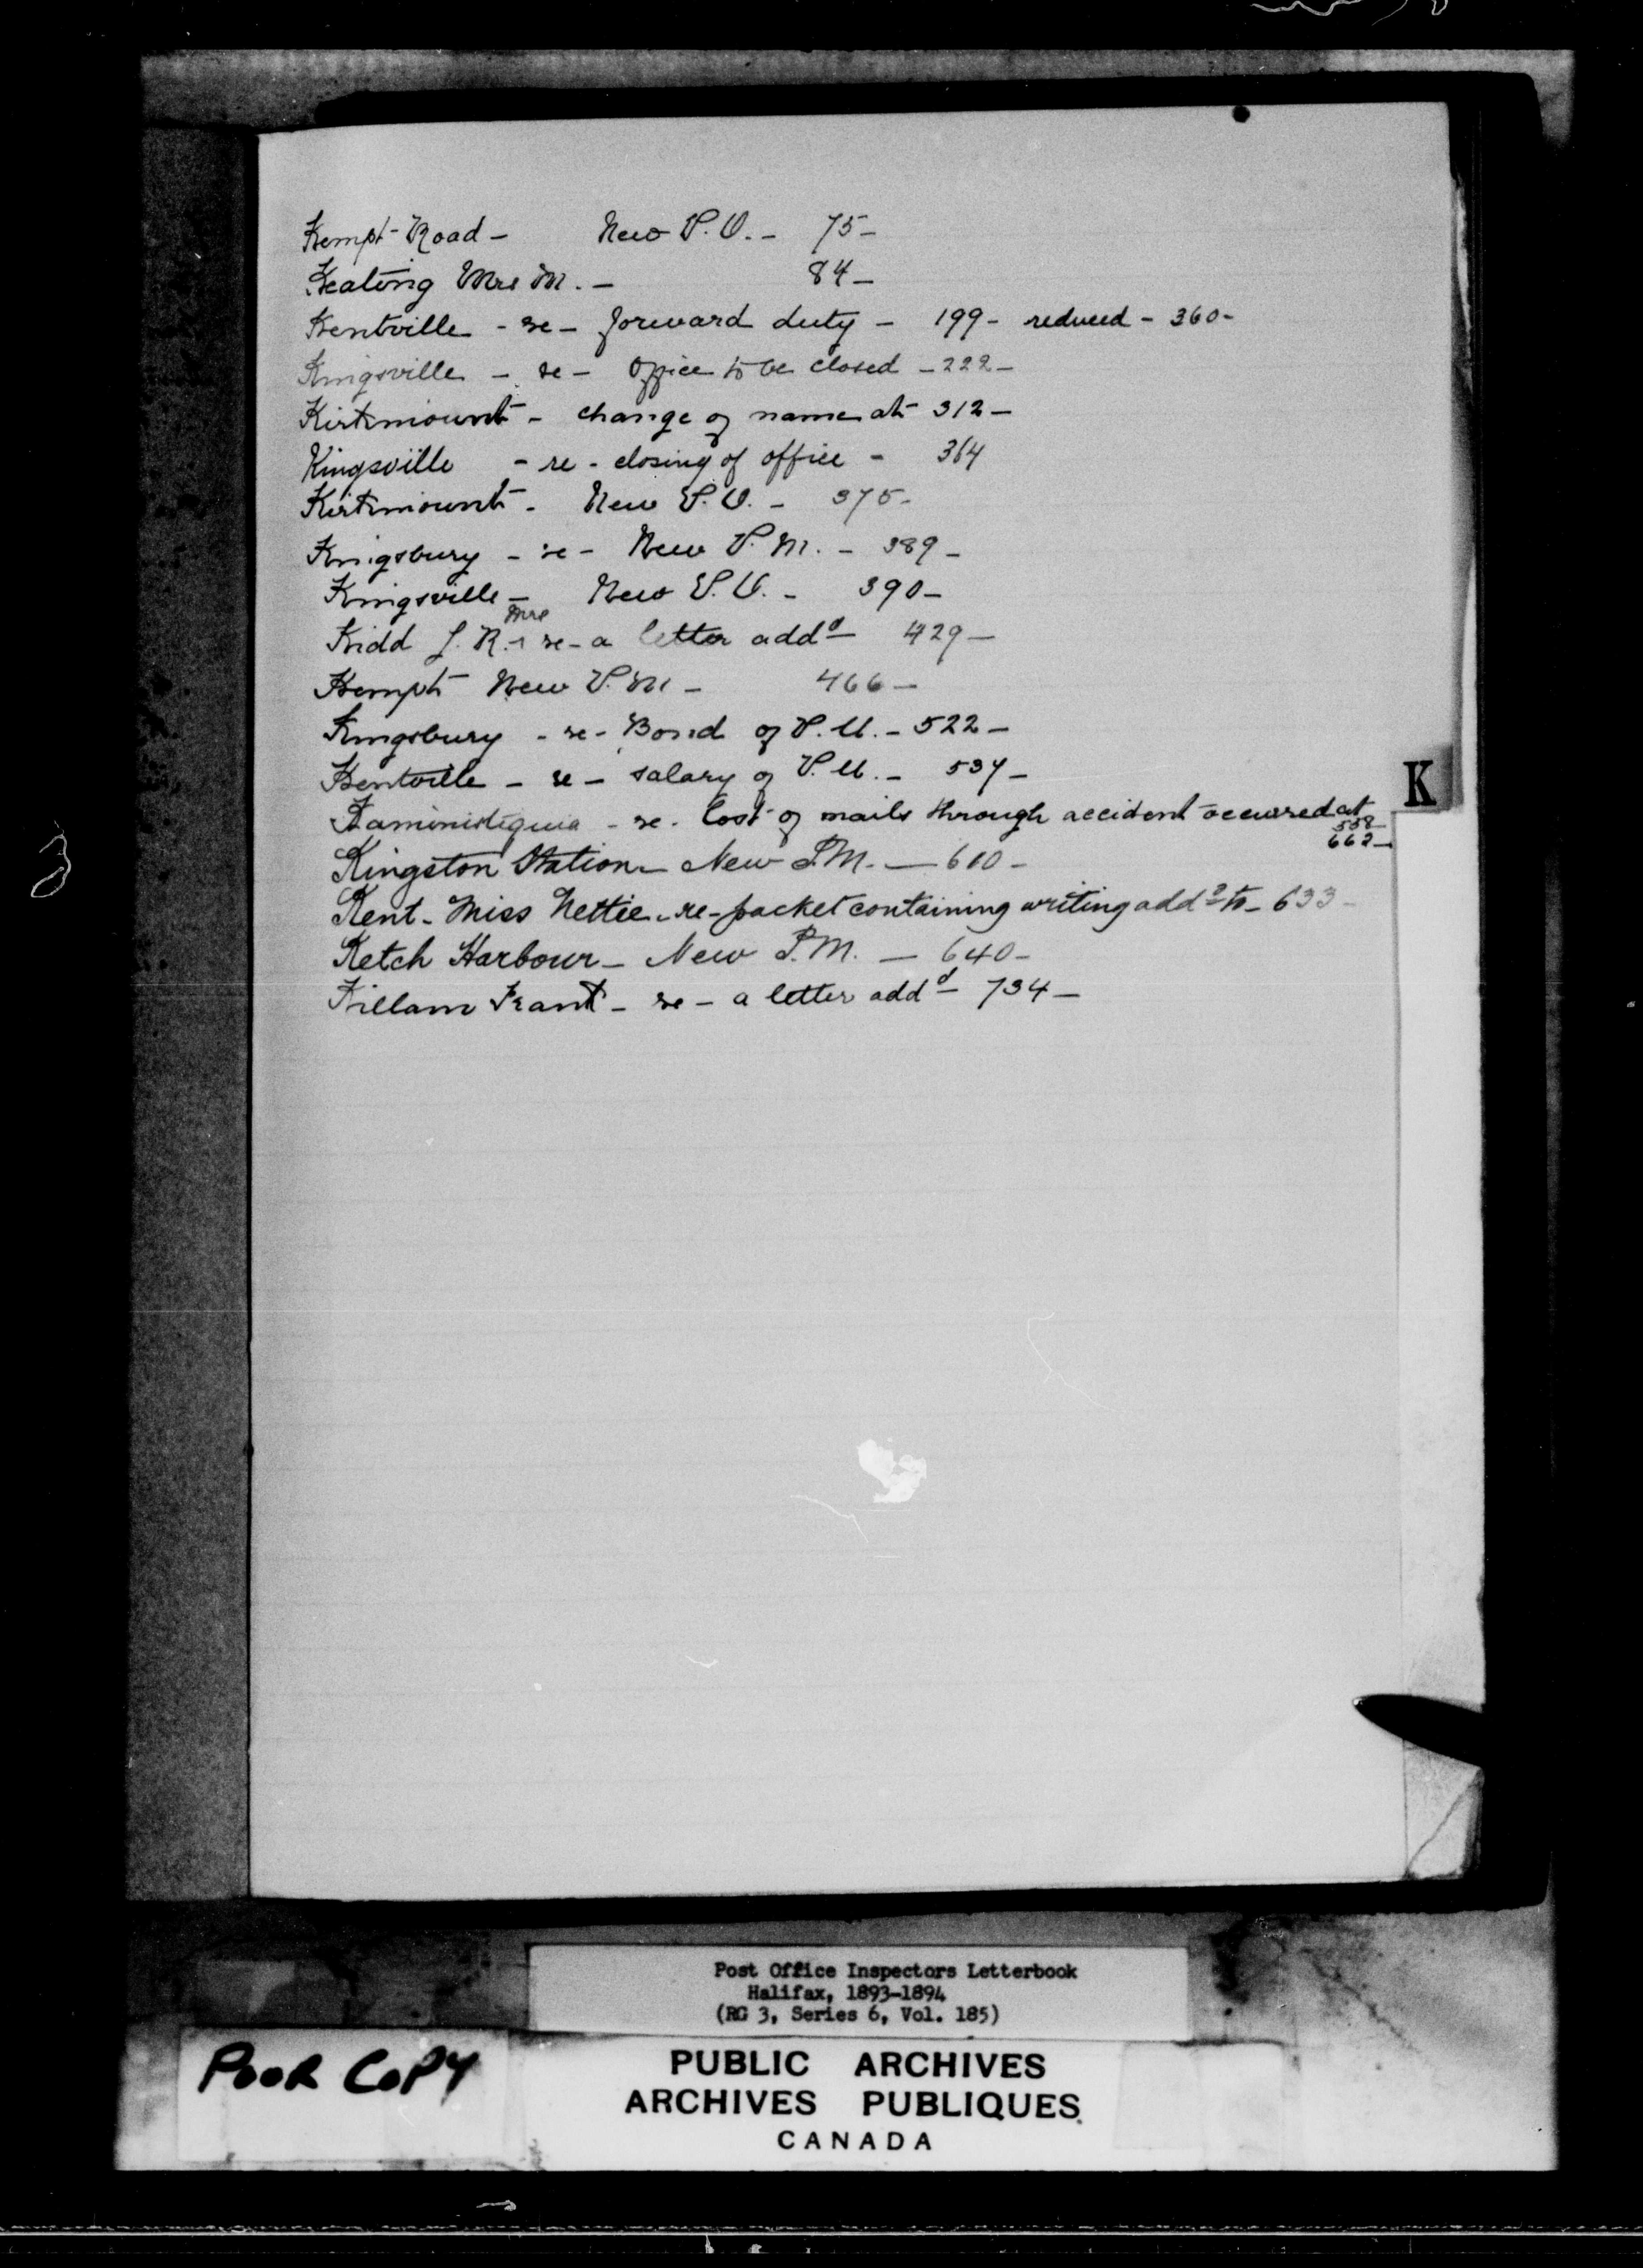 Kempt Road - New P.O. - 75 -
Keating Mrs M. - 84 -
Kentville - re - forward duty - 199 - reduced - 360 -
Kingsville - re - office to be closed - 222 -
Kirkmount - change of name at 312 -
Kingsville - re - closing of office - 364
Kirkmount - New P.O. - 375 -
Kingsbury - re - New P.M. - 389 -
Kingsville - New P.O. - 390 -
Mrs
Kidd J. R. - re - a letter addd 429 -
Kempt New P.M - 466 -
Kingsbury - re - Bond of P.M. - 522 -
Kentville - re - salary of P.M. - 534 -
Kaministiquia - re - loss of mails through accident occurred at
558
662 -
K
Kingston Station - New P.M. - 600 -
Kent - Miss Nettie - re - packet containing writing addd to - 633 -
Ketch Harbour - New P.M. - 640 -
Killam Frank - re - a letter addd 734 -
Post Office Inspectors Letterbook
Halifax, 1893-1894
(RG 3, Series 6, Vol. 185)
POOR COPY
PUBLIC ARCHIVES
ARCHIVES PUBLIQUES
CANADA